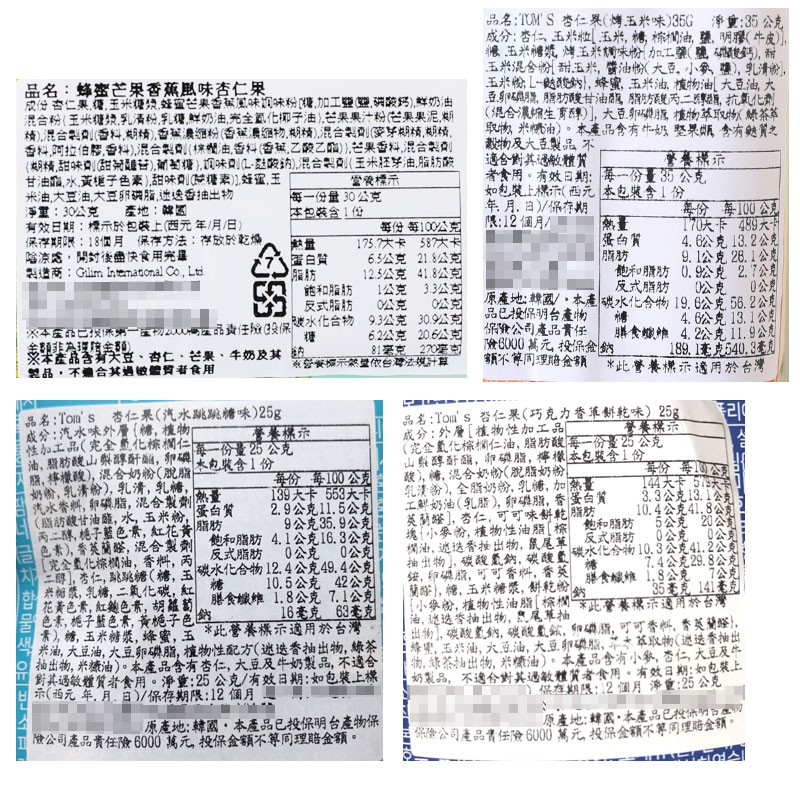 品名：蜂蜜芒果香蕉風味杏仁果
成份:杏仁果,糖,玉米糖漿,蜂蜜芒果香蕉風味調味粉[糖,加工鹽(鹽,碳酸鈣),鮮奶油
混合粉(玉米糖漿,乳清粉,乳糖,鮮奶油,完全氫化椰子油),芒果果汁粉(芒果果泥,糊
精),混合製劑(香料,糊精),香蕉濃縮粉(香蕉濃縮物,糊精),混合製劑(麥芽糊精,糊精,
香料,阿拉伯膠,香料),混合製劑(棕櫚油,香料(香蕉,乙酸乙酯)),芒果香料,混合製劑
(糊精,甜味劑(甜菊醣苷),葡萄糖),調味劑(L-麩酸鈉),混合製劑(玉米胚芽油,脂肪酸
甘油酯,水,黃梔子色素),甜味劑(蔗糖素)],蜂蜜,玉
米油,大豆油,大豆卵磷脂,迷迭香抽出物
淨重：30公克　產地：韓國
有效日期：標示於包裝上(西元 年/月/日)
保存期限：18個月　保存方法：存放於乾燥
陰涼處，開封後盡快食用完畢
製造商：Gilim International Co., Ltd
※本產品已投保第一產物2000萬產品責任險(投保
金額非為理賠金額)
※本產品含有大豆、杏仁、芒果、牛奶及其
製品，不適合其過敏體質者食用
營養標示
每一份量 30 公克
本包裝含 1 份
每份 每100公克
熱量 175.7大卡 587大卡
蛋白質 6.5公克 21.8公克
脂肪 12.5公克 41.8公克
飽和脂肪 1公克 3.3公克
反式脂肪 0公克 0公克
碳水化合物 9.3公克 30.9公克
糖 6.2公克 20.6公克
鈉 81毫克 270毫克
※營養標示熱量依台灣法規計算
品名:TOM'S 杏仁果(烤玉米味)35G　淨重:35公克
成分:杏仁,玉米粒[玉米,糖,棕櫚油,鹽,明膠(牛皮)],
糖,玉米糖漿,烤玉米調味粉[加工鹽(鹽,碳酸鈣),甜
玉米混合粉[甜玉米,醬油粉(大豆,小麥,鹽),乳清粉],
玉米粉,L-麩酸鈉],蜂蜜,玉米油,植物油[大豆油,大
豆卵磷脂,脂肪酸甘油酯,脂肪酸丙二醇酯,抗氧化劑
(混合濃縮生育醇)],大豆卵磷脂,植物萃取物(綠茶萃
取物,米糠油)。本產品含有牛奶,堅果類,含有麩質之
穀物及大豆製品,不
適合對其過敏體質
者食用。有效日期:
如包裝上標示(西元
年.月.日)/保存期
限:12個月/
原產地:韓國/・本產
品已投保明台產物
保險公司產品責任
險6000萬元,投保金
額不等同理賠金額
營養標示
每一份量 35 公克
本包裝含 1 份
每份 每 100公克
熱量 170大卡 489大卡
蛋白質 4.6公克 13.2公克
脂肪 9.1公克 26.1公克
飽和脂肪 0.9公克 2.7公克
反式脂肪 0公克 0公克
碳水化合物 19.6公克 56.2公克
糖 4.6公克 13.1公克
膳食纖維 4.2公克 11.9公克
鈉 189.1毫克 540.3毫克
*此營養標示適用於台灣
品名:Tom's 杏仁果(汽水跳跳糖味)25g
成分:汽水味外層[糖,植物
性加工品(完全氫化棕櫚仁
油,脂肪酸山梨醇酐酯,卵磷
脂,檸檬酸),混合奶粉(脫脂
奶粉,乳清粉),乳清,乳糖,
汽水香料,卵磷脂,混合製劑
(脂肪酸甘油酯,水,玉米粉,
丙二醇,梔子藍色素,紅花黃
色素),香莢蘭醛,混合製劑
[完全氫化棕櫚油,香料,丙
二醇],杏仁,跳跳糖(糖,玉
米糖漿,乳糖,二氧化碳,紅
花黃色素,紅麴色素,胡蘿蔔
色素,梔子藍色素,黃梔子色
素),糖,玉米糖漿,蜂蜜,玉
米油,大豆油,大豆卵磷脂,植物性配方(迷迭香抽出物,綠茶
抽出物,米糠油)。本產品含有杏仁,大豆及牛奶製品,不適合
對其過敏體質者食用。淨重:25公克/有效日期:如包裝上標
示(西元 年.月.日)/保存期限:12個月
原產地:韓國・本產品已投保明台產物保
險公司產品責任險6000萬元,投保金額不等同理賠金額。
營養標示
每一份量 25 公克
本包裝含 1 份
每份 每 100公克
熱量 139大卡 553大卡
蛋白質 2.9公克 11.5公克
脂肪 9公克 35.9公克
飽和脂肪 4.1公克 16.3公克
反式脂肪 0公克 0公克
碳水化合物 12.4公克 49.4公克
糖 10.5公克 42公克
膳食纖維 1.8公克 7.1公克
鈉 16毫克 63毫克
*此營養標示適用於台灣
品名:Tom's 杏仁果(巧克力香草餅乾味)25g
成分:外層[植物性加工品
(完全氫化棕櫚仁油,脂肪酸
山梨醇酐酯,卵磷脂,檸檬
酸),糖,混合奶粉(脫脂奶粉
乳清粉),全脂奶粉,乳糖,加
工鮮奶油(乳脂),卵磷脂,香
莢蘭醛],杏仁,可可味餅乾
塊[小麥粉,植物性油脂[棕
櫚油,迷迭香抽出物,鼠尾草
抽出物],碳酸氫鈉,碳酸氫
銨,卵磷脂,可可香料,香莢
蘭醛],糖,玉米糖漿,餅乾粉
[小麥粉,植物性油脂[棕櫚
油,迷迭香抽出物,鼠尾草抽
出物],碳酸氫鈉,碳酸氫銨,卵磷脂,可可香料,香莢蘭醛],
蜂蜜,玉米油,大豆油,大豆卵磷脂,萃取物(迷迭香抽出
物,綠茶抽出物,米糠油)。本產品含有小麥,杏仁,大豆及牛
奶製品,不適合對其過敏體質者食用。有效日期:如包裝上標
保存期限:12個月 淨重:25公克
原產地:韓國・本產品已投保明台產物保
險公司產品責任險6000萬元,投保金額不等同理賠金額。
營養標示
每一份量 25 公克
本包裝含 1 份
每份 每 100公克
熱量 144大卡 579大卡
蛋白質 3.3公克 13.1公克
脂肪 10.4公克 41.8公克
飽和脂肪 5公克 20公克
反式脂肪 0公克 0公克
碳水化合物 10.3公克 41.2公克
糖 7.4公克 29.8公克
膳食纖維 1.8公克 7公克
鈉 35毫克 141毫克
*此營養標示適用於台灣